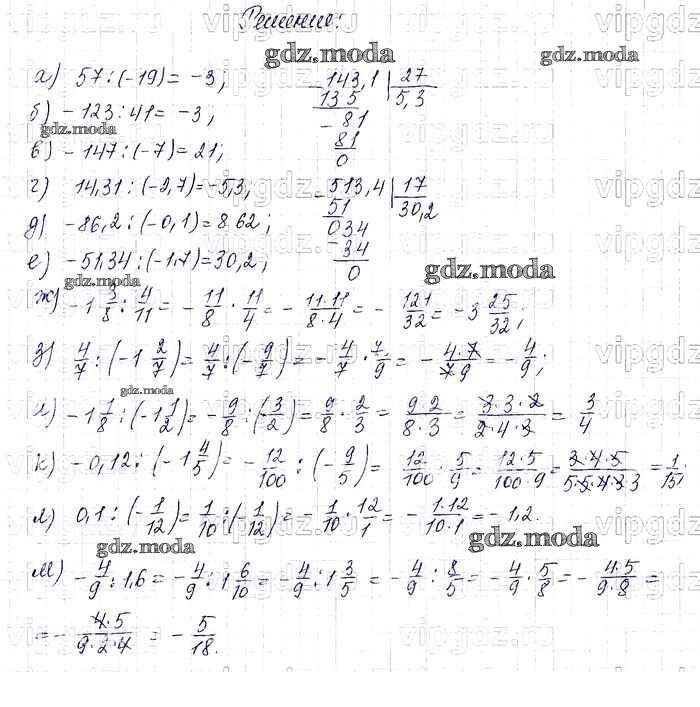 Решение:
gdz.moda
а) 57 : (-19) = -3;
143,1 | 27
135 5,3
- 81
81
0
б) -123 : 41 = -3;
gdz.moda
в) -147 : (-7) = 21;
г) 14,31 : (-2,7) = -5,3;
- 513,4 | 17
51 30,2
034
- 34
0
д) -86,2 : (-0,1) = 862;
е) -51,34 : (-1,7) = 30,2;
gdz.moda
gdz.moda
ж) -1 3/8 : 4/11 = - 11/8 · 11/4 = - 11·11/8·4 = - 121/32 = -3 25/32;
з) 4/7 : (-1 2/7) = 4/7 : (- 9/7) = - 4/7 · 7/9 = - 4·7/7·9 = - 4/9;
gdz.moda
и) -1 1/8 : (-1 1/2) = - 9/8 : (- 3/2) = 9/8 · 2/3 = 9·2/8·3 = 3·3·2/2·4·3 = 3/4
к) -0,12 : (-1 4/5) = - 12/100 : (- 9/5) = 12/100 · 5/9 = 12·5/100·9 = 3·4·5/5·5·4·3·3 = 1/15;
л) 0,1 : (- 1/12) = 1/10 : (- 1/12) = - 1/10 · 12/1 = - 1·12/10·1 = -1,2.
gdz.moda
gdz.moda
м) - 4/9 : 1,6 = - 4/9 : 1 6/10 = - 4/9 : 1 3/5 = - 4/9 : 8/5 = - 4/9 · 5/8 = - 4·5/9·8 =
= - 4·5/9·2·4 = - 5/18.